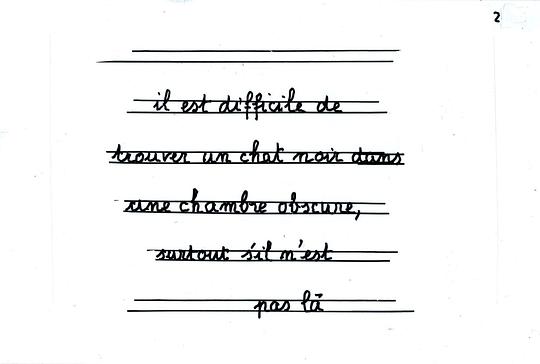 2
il est difficile de
trouver un chat noir dans
une chambre obscure,
surtout s'il n'est
pas là